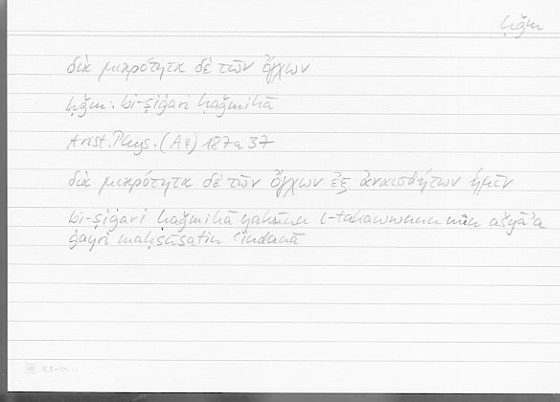 ḥǧm
διὰ μικρότητα δὲ τῶν ὄγκων
ḥǧm. bi-ṣiġari ḥaǧmihā
Arist. Phys. (A4) 187a37
διὰ μικρότητα δὲ τῶν ὄγκων ἐξ ἀναισθήτων ἡμῖν
bi-ṣiġari ḥaǧmihā yakūnu l-takawwunu min ašyāʾa
ġayri maḥsūsatin ʿindanā